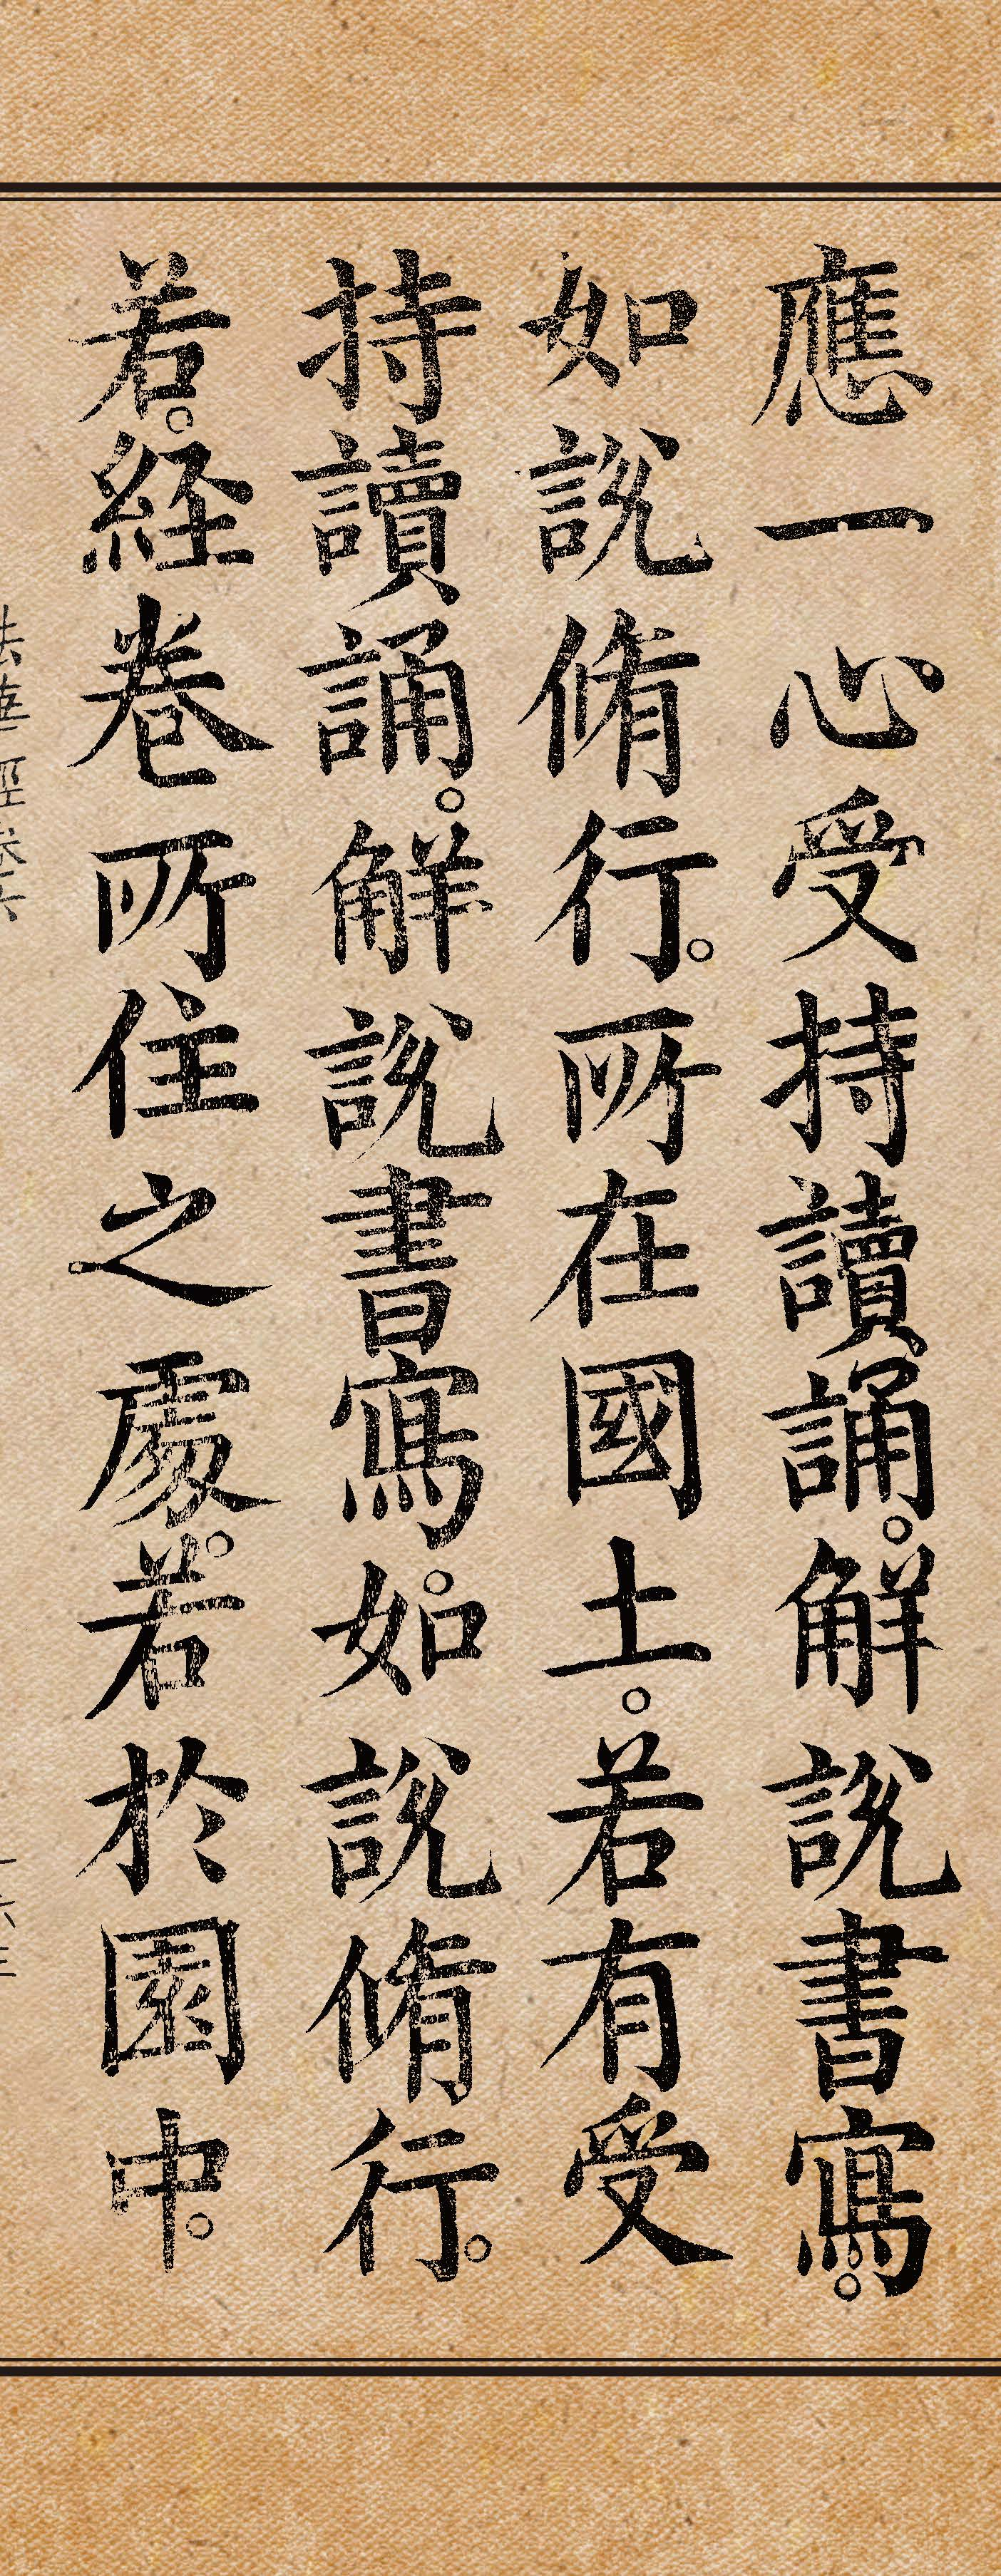 應一心受持讀誦。解說書寫。
如說脩行。所在國土。若有受
持讀誦。解說書寫。如說脩行。
若。経卷所住之處。若於園中。
法華經卷六